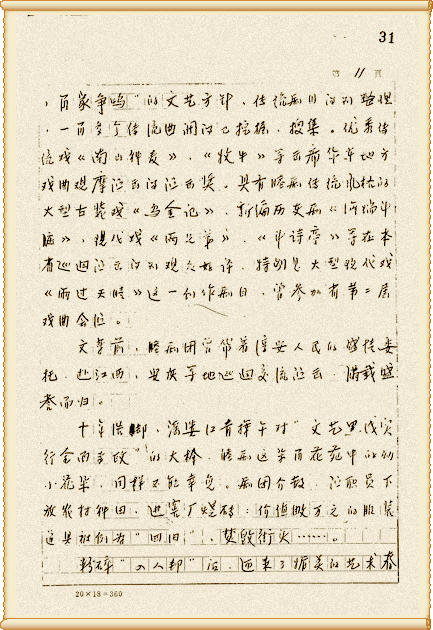 31
第 11 页
，百家争鸣"的文艺方针，传统剧目得到整理
，一百多个传统曲调得已挖掘、搜集。优秀传
统戏《南山种麦》，《牧牛》等去省华东地方
戏曲观摩演出得演出奖。具有睦剧传统风格的
大型古装戏《乌金记》，新编历史剧《海瑞斗
》，现代戏《两兄弟》，《斗诗亭》等在本
省巡回演出得到观众好评，特别是大型现代戏
《雨过天晴》这一创作剧目，曾参加省第二届
戏曲会演。
文革前，睦剧团曾带着淳安人民的盛情委
托，赴江西，安庆等地巡回交流演出，满载盛
誉而归。
十年浩劫，江青挥午对"文艺黑线实
行全面专政"的大棒，睦剧这朵百花苑中的幼
小花朵，同样不能幸免。剧团介散，演职员下
放农村种田，进窑厂烧砖；价值数万元的服装
道具被例为"四旧"，焚毁街火……。
粉碎"四人邦"后，迎来了媚美的艺术春
20×18=360